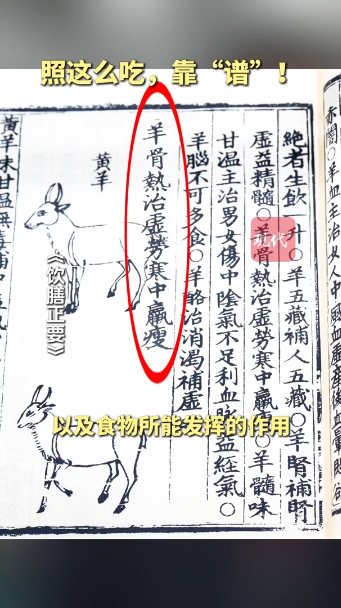 照这么吃，靠“谱”！
羊血主治女人中風血虛產後血
絶者生飲一升○羊五藏補人五藏○羊腎補腎
虛益精髓○羊骨熱治虛勞寒中羸○羊髓味
甘温主治男女傷中陰氣不足利血脉益經氣○
羊腦不可多食○羊酪治消渴補虛
羊骨熱治虛勞寒中羸瘦
黄羊
黄羊味甘温無毒補中益氣
现代
《饮膳正要》
以及食物所能发挥的作用